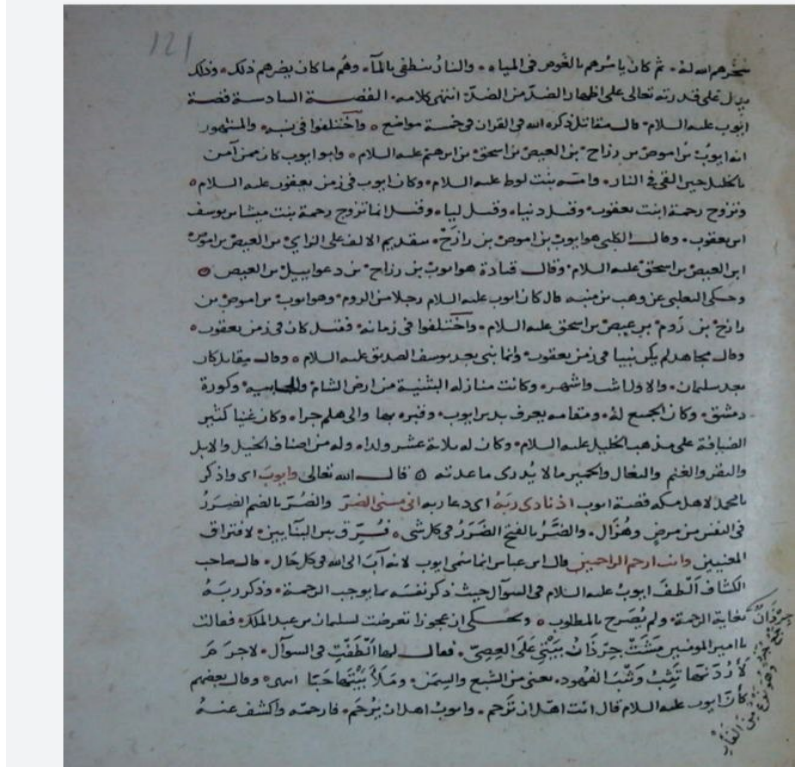 121
سخرهم الله له ۰ ثم كان يأمرهم بالغوص فى المياه ۰ والنار تنطفى بالمآء ۰ وهم ما كان يضرهم ذلك ۰ وذلك
يدل على قدرته تعالى على اظهار الضد من الضد انتهى كلامه ۰ القصة السادسة قصة
ايوب عليه السلام ۰ قال مقاتل ذكره الله فى القران فى خمسة مواضع ۰ واختلفوا فى نسبه ۰ والمشهور
انه ايوب بن اموص بن رزاح ۰ بن العيص بن اسحق بن ابرهيم عليه السلام ۰ وابو ايوب كان ممن آمن
بالخليل حين القى فى النار ۰ وامه بنت لوط عليه السلام ۰ وكان ايوب فى زمن يعقوب عليه السلام ۰
وتزوج رحمة ابنت يعقوب ۰ وقيل دنيا ۰ وقيل ليا ۰ وقيل انما تزوج رحمة بنت ميشا بن يوسف
ابن يعقوب ۰ وقال الكلبى هو ايوب بن اموص بن رازح ۰ بتقديم الالف على الزاى بن العيص بن اموص
ابن العيص بن اسحق عليه السلام ۰ وقال قتادة هو ايوب بن رزاح ۰ بن دعواييل بن العيص ۰
وحكى الثعلبى عن وهب بن منبه قال كان ايوب عليه السلام رجلا من الروم ۰ وهو ايوب بن اموص بن
رازح ۰ بن روم ۰ بن عيص بن اسحق عليه السلام ۰ واختلفوا فى زمانه ۰ فقيل كان فى زمن يعقوب ۰
وقال مجاهد لم يكن نبيا فى زمن يعقوب ۰ وانما نبى بعد يوسف الصديق عليه السلام ۰ وقال مقاتل كان
بعد سليمان ۰ والاول اثبت واشهر ۰ وكانت منازله البثنية من ارض الشام ۰ والجابيه ۰ وكورة
دمشق ۰ وكان الجميع له ۰ ومقامه يعرف بدير ايوب ۰ وقبره بها والى هلم جرا ۰ وكان غنيا كثير
الضيافة على مذهب الخليل عليه السلام ۰ وكان له ثلاثة عشر ولدا ۰ وله من اصناف الخيل والابل
والبقر والغنم والبغال والحمير ما لا يدرى ما عدته ۰ قال الله تعالى وايوب اى واذكر
يا محمد لاهل مكه قصة ايوب اذ نادى ربه اى دعا ربه انى مسنى الضر والضر بالضم الضرر
فى النفس من مرض وهزال ۰ والضر بالفتح الضرر فى كل شى ۰ فرق بين البنايين ۰ لافتراق
المعنيين وانت ارحم الراحمين قال ابن عباس انما سمى ايوب لانه آب الى الله فى كل حال ۰ قال صاحب
الكشاف الطف ايوب عليه السلام فى السوآل حيث ذكر نفسه بما يوجب الرحمة ۰ وذكر ربه
بغاية الرحمة ۰ ولم يصرح بالمطلوب ۰ ويحكى ان عجوزا تعرضت لسليمان بن عبد الملك ۰ فقالت
يا امير المومنين مشت جرذان بيتى على العصى ۰ فقال لها الطفت فى السوآل ۰ لا جرم
لأردنها تثب وثب الفهود ۰ يعنى من الشبع والسمن ۰ وملأ بيتها حبا انتهى ۰ وقال بعضهم
كأن ايوب عليه السلام قال انت اهل ان ترحم ۰ وايوب اهل ان يرحم ۰ فارحمه واكشف عنه
جرذان
من الفار